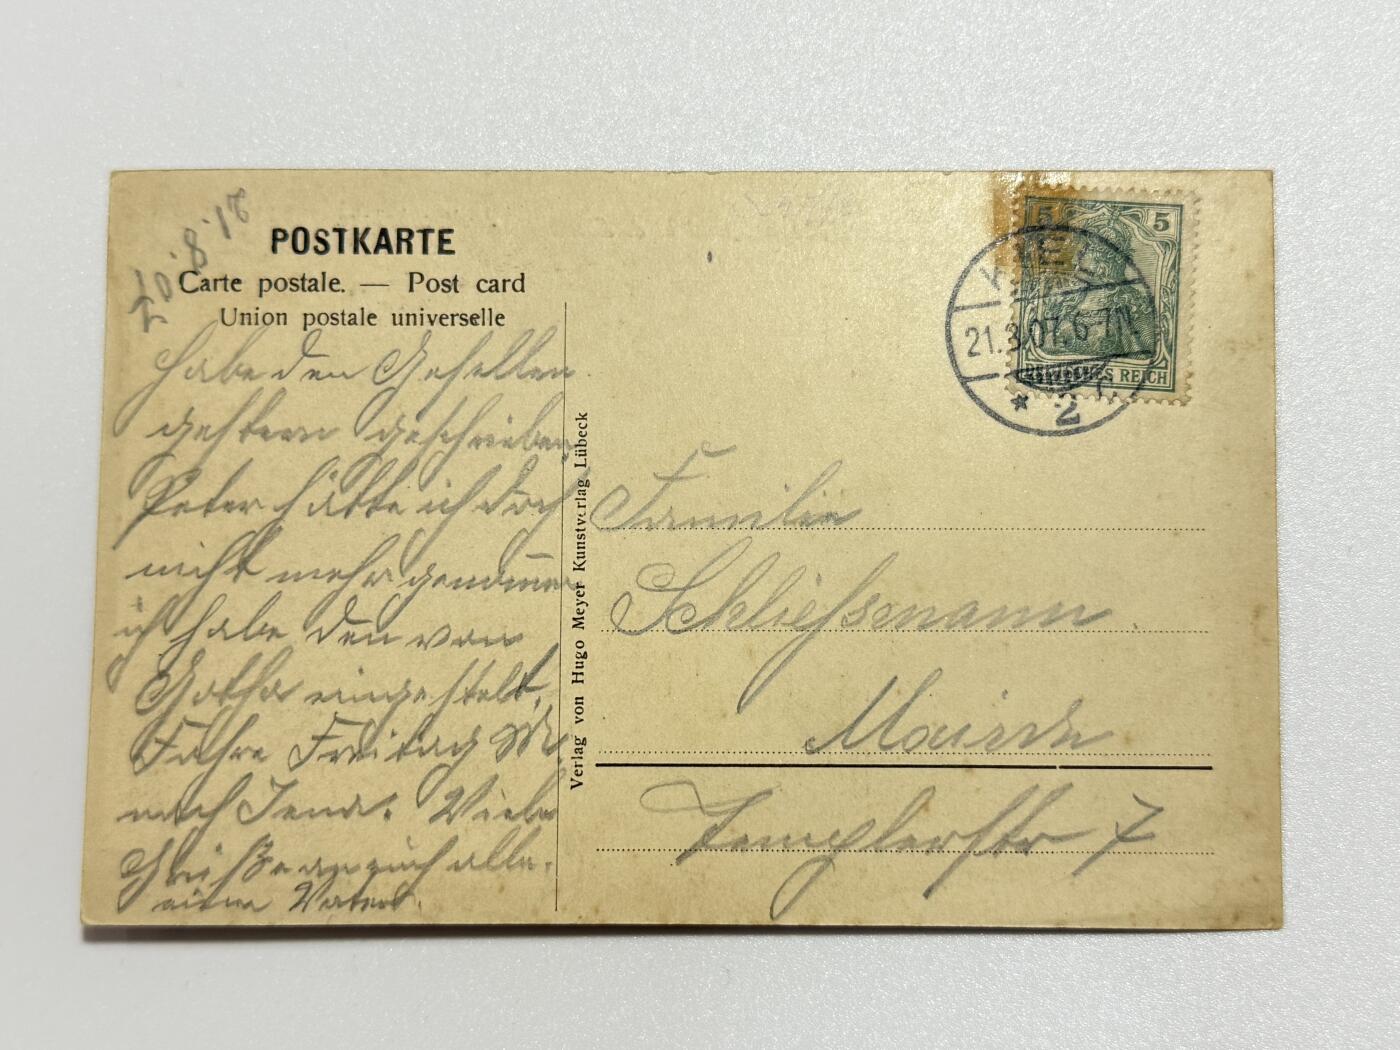 POSTKARTE
Carte postale. — Post card
Union postale universelle
habe den Gesellen
gestern geschrieben,
Peter hätte ich doch
nicht mehr genommen
ich habe den von
Gotha eingestelt,
Fahre Freitag M.
nach Jena. Viele
Grüße an euch alle.
Vater.
Verlag von Hugo Meyer Kunstverlag Lübeck
5 5
DEUTSCHES REICH
KIEL
21.3.07. 6-7N.
* 2
Familie
Schliessmann
Templerstr 7